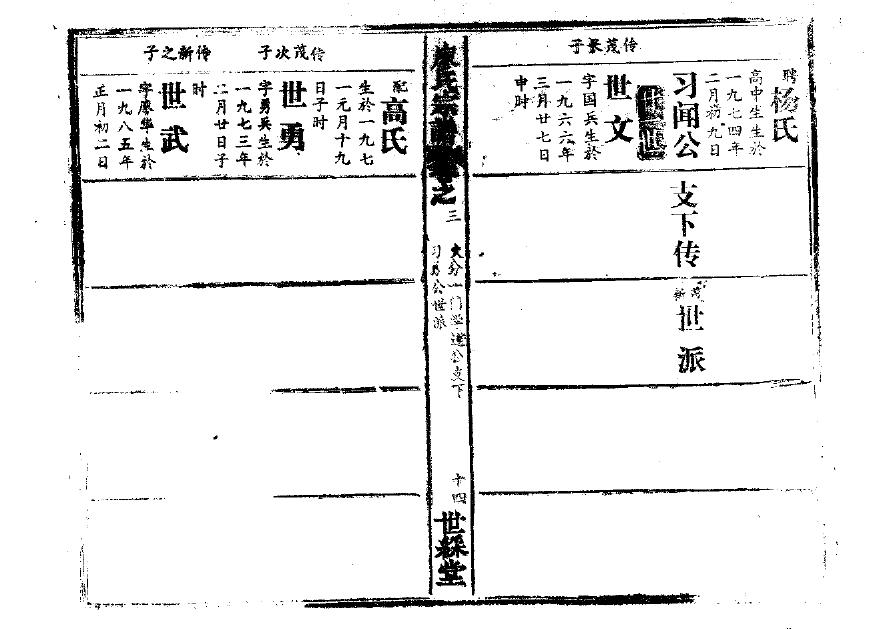 聘杨氏
高中生生於
一九七四年
二月初九日
习闻公支下传茂新世派
传茂长子
世文
字国兵生於
一九六六年
三月廿七日
申时
廖氏宗谱卷之三
大分一门学道公支下
习勇公世派
十四
世綵堂
配高氏
生於一九七
一元月十九
日子时
传茂次子
世勇
字勇兵生於
一九七三年
二月廿日子
时
传新之子
世武
字廖华生於
一九八五年
正月初二日